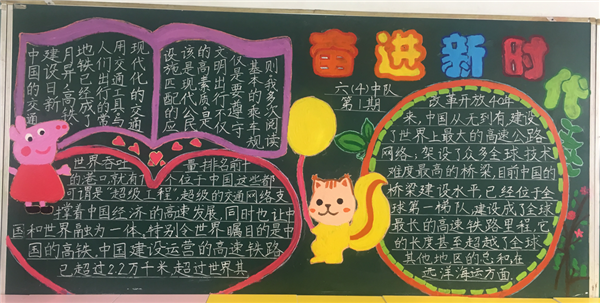 奋进新时代
六(4)中队
第1期
中国的交通
建设日新
月异,高铁
地铁已经成了
人们出行的常
用交通工具与
现代化的交通
设施匹配的应
该是现代人民
的高素质
文明出行不仅
仅是要遵守
基本的乘车规
则我多次阅读
世界吞吐量排名前十
的港口,就有个位于中国这些都
可谓是“超级工程”,超级的交通网络支
撑着中国经济的高速发展,同时也让中
国和世界融为一体,特别令世界瞩目的是中
国的高铁,中国建设运营的高速铁路
已超过2.2万千米,超过世界其
改革开放40年
来,中国从无到有,建设
了世界上最大的高速公路
网络,架设了众多全球技术
难度最高的桥梁,目前中国的
桥梁建设水平已经位于全
球第一梯队,建设成了全球
最长的高速铁路里程,它
的长度甚至超越了全球
其他地区的总和,在
远洋海运方面